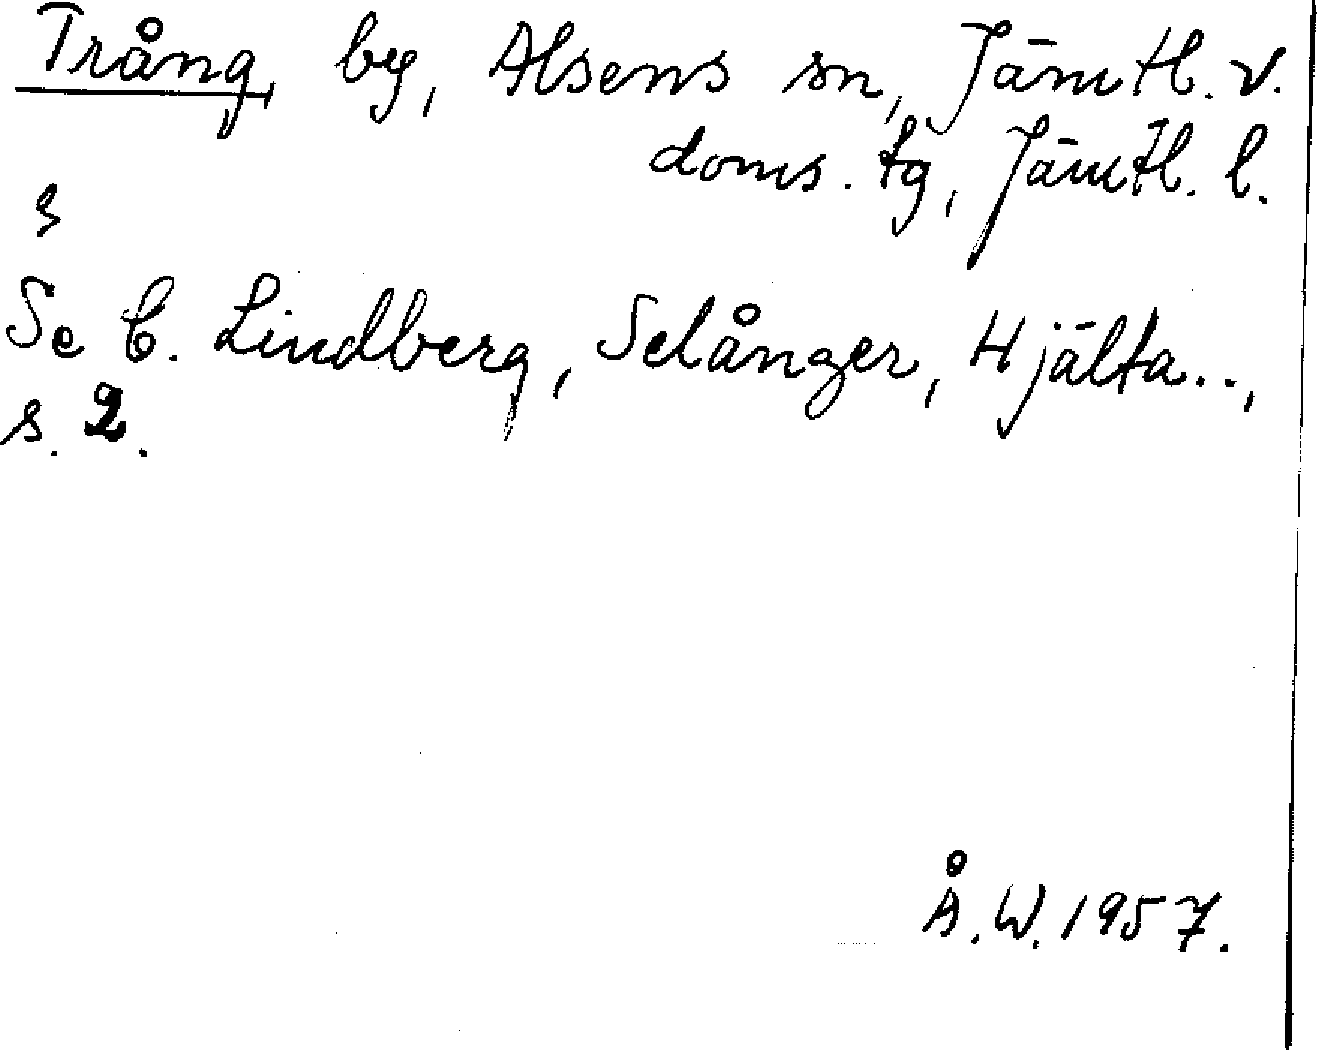 Trång, by, Alsens sn, Jämtl. v.
doms. tg, Jämtl. l.
Se C. Lindberg, Selånger, Hjälta..,
s. 2.
Å.W. 1957.